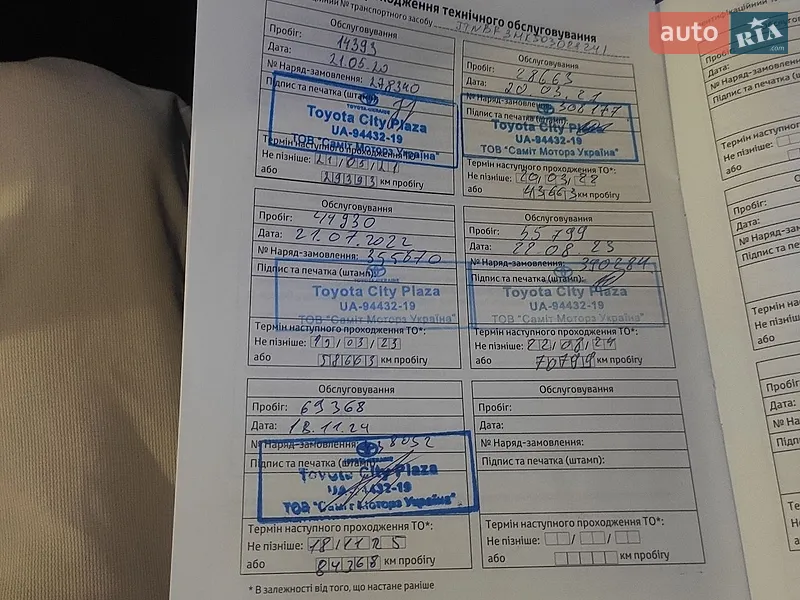 ходження технічного обслуговування
№ транспортного засобу
auto RIA .com
Обслуговування
Пробіг: 14393
Дата: 21.05.20
№ Наряд-замовлення: 278340
Підпис та печатка (штамп)
TOYOTA-UKRAINE
Toyota City Plaza
UA-94432-19
ТОВ "Саміт Моторз Україна"
Термін наступного проходження ТО*:
Не пізніше: 21/05/21
або 29393 км пробігу
Обслуговування
Пробіг: 28663
Дата: 20.03.21
№ Наряд-замовлення: 308177
Підпис та печатка (штамп):
Toyota City Plaza
UA-94432-19
ТОВ "Саміт Моторз Україна"
Термін наступного проходження ТО*:
Не пізніше: 20/03/22
або 43663 км пробігу
Обслуговування
Пробіг: 44930
Дата: 21.07.2022
№ Наряд-замовлення: 355670
Підпис та печатка (штамп):
Toyota City Plaza
UA-94432-19
ТОВ "Саміт Моторз Україна"
Термін наступного проходження ТО*:
Не пізніше: /03/23
або 58663 км пробігу
Обслуговування
Пробіг: 55799
Дата: 22 08 23
№ Наряд-замовлення: 390284
Підпис та печатка (штамп):
Toyota City Plaza
UA-94432-19
ТОВ "Саміт Моторз Україна"
Термін наступного проходження ТО*:
Не пізніше: 22/08/24
або 70799 км пробігу
Обслуговування
Пробіг: 69368
Дата: 18.11.24
№ Наряд-замовлення: 8052
Підпис та печатка (штамп)
Toyota City Plaza
UA-94432-19
ТОВ "Саміт Моторз Україна"
Термін наступного проходження ТО*:
Не пізніше: 18/11/25
або 84368 км пробігу
Обслуговування
Пробіг:
Дата:
№ Наряд-замовлення:
Підпис та печатка (штамп):
Термін наступного проходження ТО*:
Не пізніше:
або км пробігу
* В залежності від того, що настане раніше
Дата:
№ Наряд-замов
Підпис та печатка
Термін наступного
Не пізніше:
або
Пробіг:
Дата:
№ Наряд-замовл
Підпис та печатка
Термін наступн
Не пізніше:
або
Пробіг:
Дата:
№ Наряд-зам
Підпис та печ
Термін насту
Не пізніше:
або